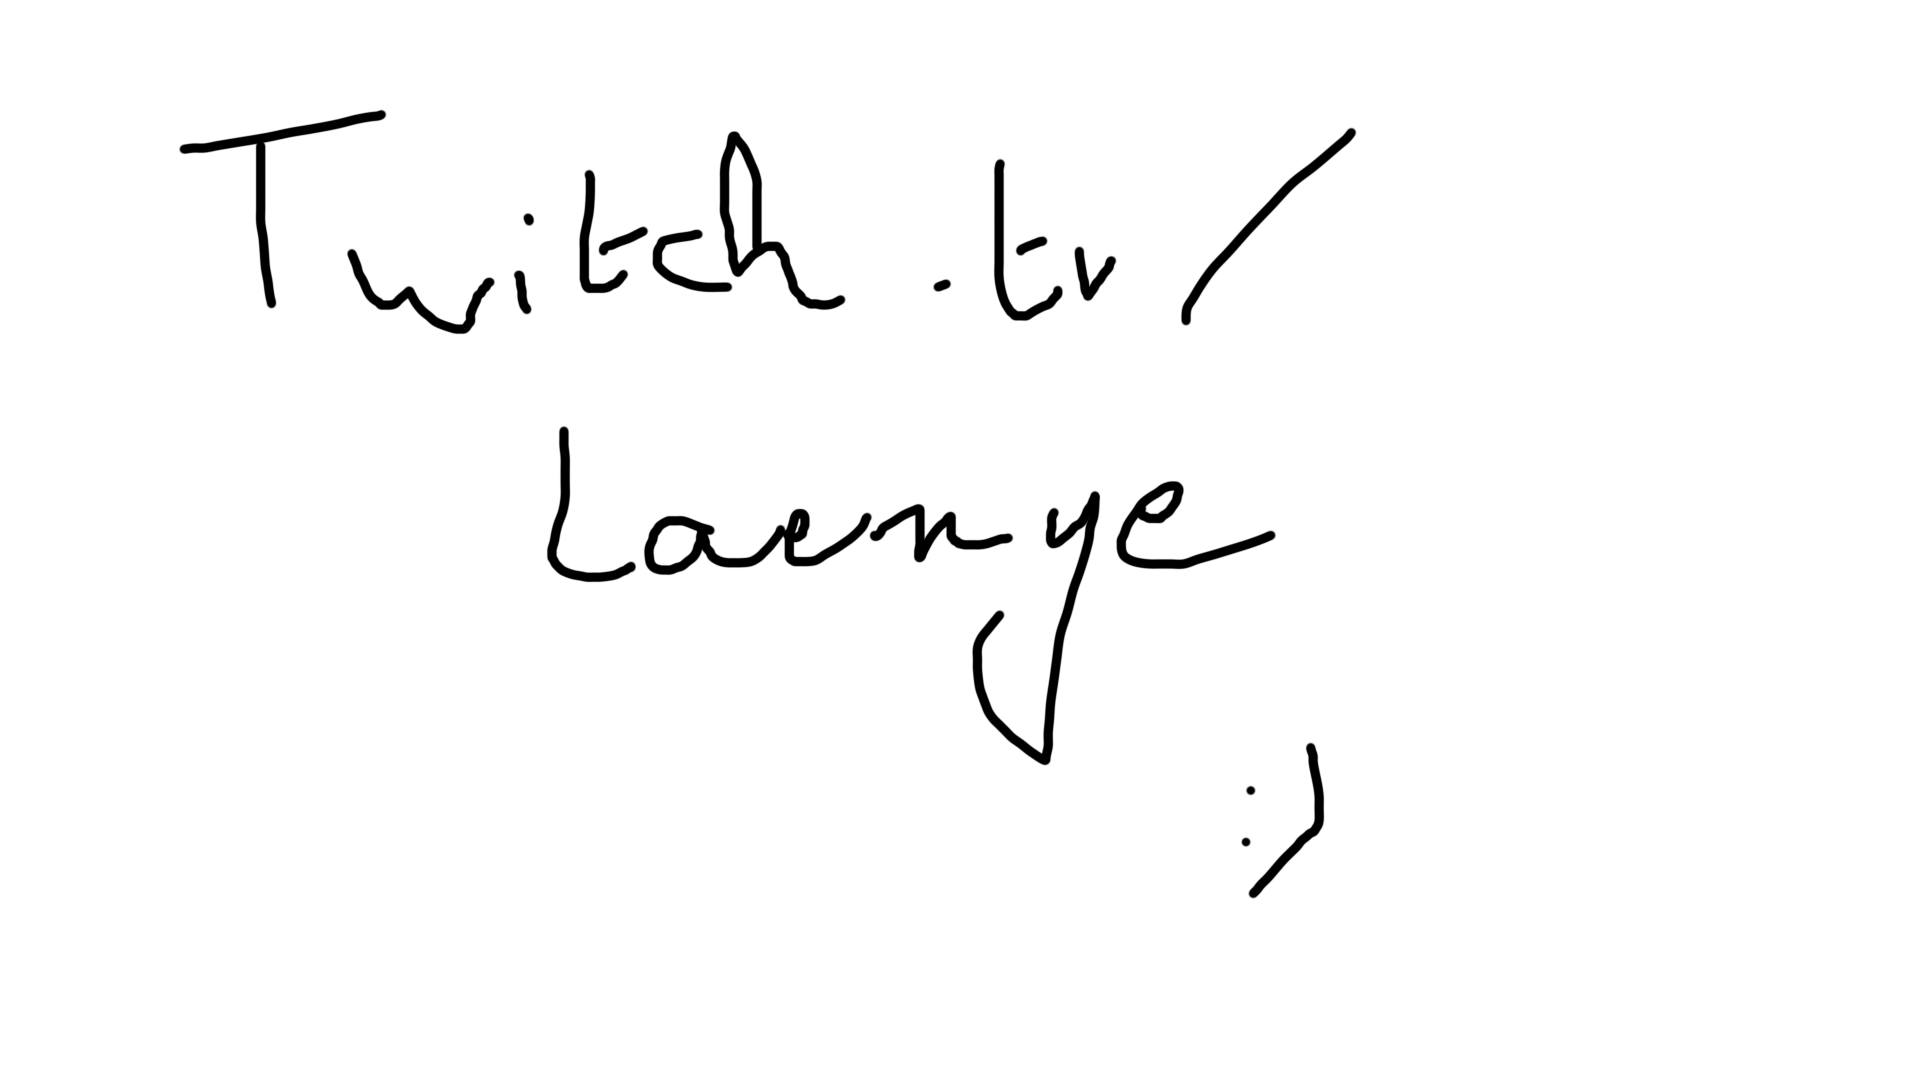 Twitch .tv/
Laenye
:)